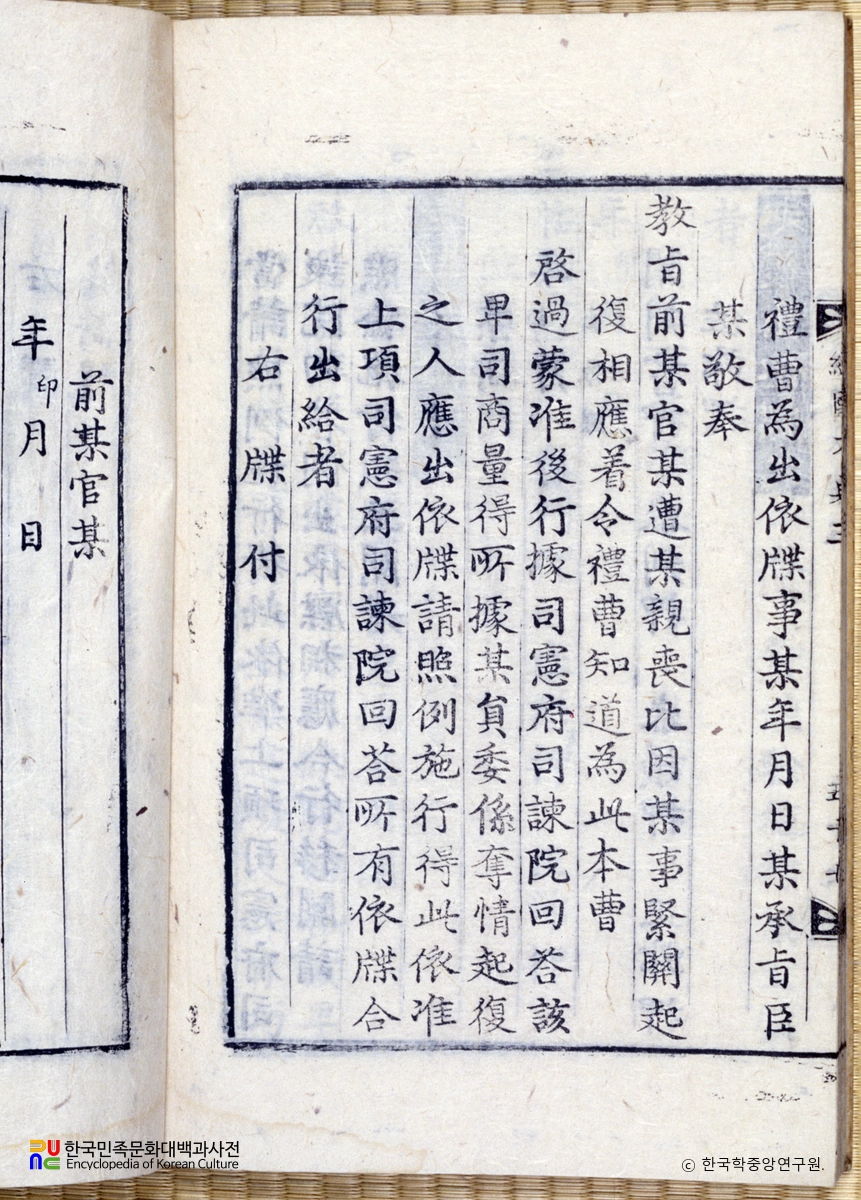 禮曹為出依牒事某年月日某承旨臣
某敬奉
教旨前某官某遭某親喪比因某事緊關起
復相應着令禮曹知道為此本曹
啓過蒙准後行據司憲府司諫院回答該
卑司商量得所據某員委係奪情起復
之人應出依牒請照例施行得此依准
上項司憲府司諫院回答所有依牒合
行出給者
右牒付
前某官某
年印月 日
한국민족문화대백과사전
Encyclopedia of Korean Culture
ⓒ 한국학중앙연구원.